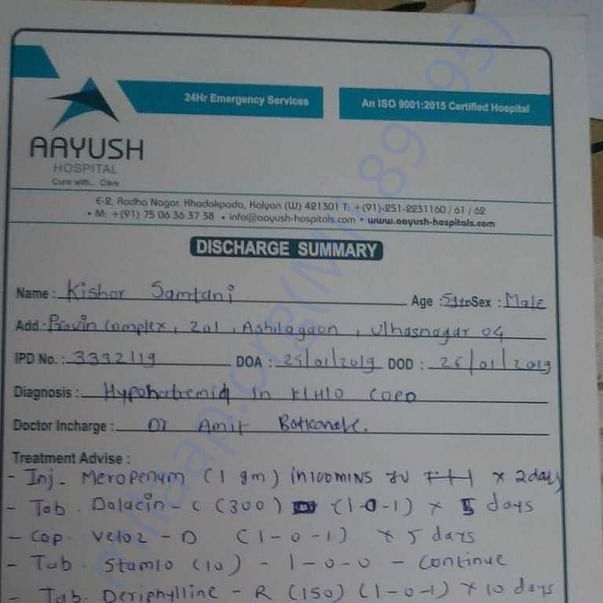 24Hr Emergency Services
An ISO 9001:2015 Certified Hospital
AAYUSH
HOSPITAL
Cure with... Care
E-2, Radha Nagar, Khadakpada, Kalyan (W) 421301 T: +(91)-251-2231160 / 61 / 62
• M: +(91) 75 06 36 37 38 • info@aayush-hospitals.com • www.aayush-hospitals.com
DISCHARGE SUMMARY
Name : Kishor Samtani Age : Sex : Male
Add : complex, 201, Ashilagaon, Ulhasnagar 04
IPD No. : 3332/19 DOA : 25/01/2019 DOD : 26/01/2019
Diagnosis : in COPD
Doctor Incharge : Dr Amit
Treatment Advise :
- Inj - Meropenum (1 gm) in 100 mins × 2 day
- Tab. Dalacin - C (300) (1-0-1) × 5 days
- Cap. Veloz - D (1-0-1) × 5 days
- Tab. Stamlo (10) - 1-0-0 - Continue
- Tab. Deriphylline - R (150) (1-0-1) × 10 days
milaap.org